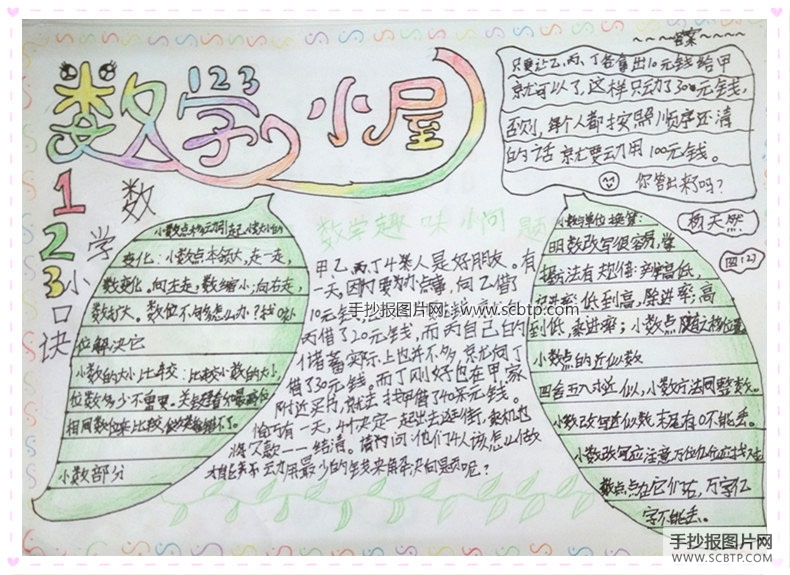 数学小屋
123
数学小口诀
123
答案
只要让乙、丙、丁各拿出10元钱给甲
就可以了,这样只动了30元钱,
否则,每个人都按照顺序还清
的话就要动用100元钱。
你答出来了吗?
杨天然
四(2)
变化:小数点本领大,走一走,
数变化。向左走,数缩小;向右走,
数扩大。数位不够怎么办?找0
位解决它
小数的大小比较:比较小数的大小,
位数多少不重要。
相同数位来比较,
小数部分
数学趣味小问题
甲、乙、丙、丁4人是好朋友。有
一天,甲因为要办点事,向乙借了
10元钱,
丙借了20元钱,而丙自己的
储蓄实际上也并不多,就向丁
借了30元钱。而丁刚好也在甲家
附近买书,就去找甲借了40元钱。
恰巧有一天,4人决定一起出去逛街,乘机也
将欠款一一结清。请问他们4人该怎么做
才能动用最少的钱来解决问题呢?
小数与单位换算:
明数改写很容易,掌
握方法有规律:
低到高,除进率;高
到低,乘进率;小数点随之移位置
小数点的近似数
四舍五入求近似,小数方法同整数。
小数改写近似数末尾有0不能丢。
小数改写应注意万位亿位应找准
数点点在它个右,万字亿
字不能丢。
手抄报图片网:www.scbtp.com
手抄报图片网
WWW.SCBTP.COM